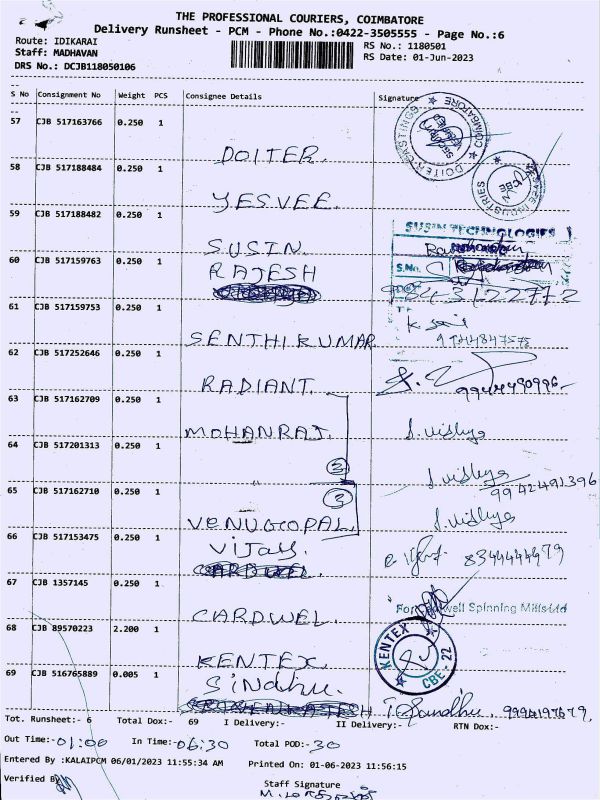 THE PROFESSIONAL COURIERS, COIMBATORE
Delivery Runsheet - PCM - Phone No.:0422-3505555 - Page No.:6
Route: IDIKARAI
RS No.: 1180501
Staff: MADHAVAN
RS Date: 01-Jun-2023
DRS No.: DCJB118050106
S No Consignment No Weight PCS Consignee Details Signature
57 CJB 517163766 0.250 1
DOITER.
COIMBATORE
58 CJB 517188484 0.250 1
YESVEE.
INDUSTRIES
CBE
59 CJB 517188482 0.250 1
SUSIN.
SUSIN TECHNOLOGIES
60 CJB 517159763 0.250 1
RAJESH
S.No.
61 CJB 517159753 0.250 1
SENTHIKUMAR
62 CJB 517252646 0.250 1
RADIANT.
9944490996-
63 CJB 517162709 0.250 1
MOHANRAJ.
S. Vidhya
64 CJB 517201313 0.250 1
3
S. Vidhya
9942491396
65 CJB 517162710 0.250 1
3
VENUGOPAL.
S. Vidhya
66 CJB 517153475 0.250 1
Vijay.
8344444979
67 CJB 1357145 0.250 1
CARDWEL.
For Cardwell Spinning Mills Ltd
68 CJB 89570223 2.200 1
KENTEX.
KENTEX
CBE 22
69 CJB 516765889 0.005 1
Sindhu.
9994197679.
Tot. Runsheet:- 6 Total Dox:- 69 I Delivery:- II Delivery:- RTN Dox:-
Out Time:-01:00 In Time:-06:30 Total POD:-30
Entered By :KALAIPCM 06/01/2023 11:55:34 AM Printed On: 01-06-2023 11:56:15
Verified By
Staff Signature